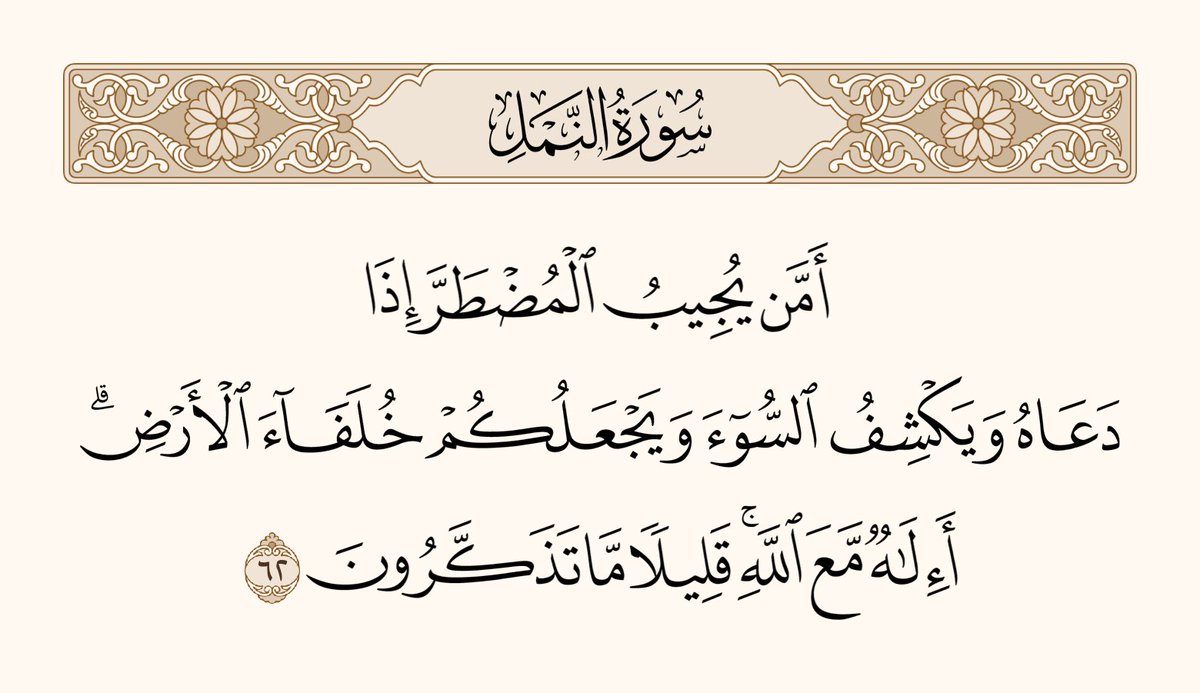 سُورَةُ النَّمۡلِ
أَمَّن يُجِيبُ ٱلۡمُضۡطَرَّ إِذَا
دَعَاهُ وَيَكۡشِفُ ٱلسُّوٓءَ وَيَجۡعَلُكُمۡ خُلَفَآءَ ٱلۡأَرۡضِۗ
أَءِلَٰهٞ مَّعَ ٱللَّهِۚ قَلِيلٗا مَّا تَذَكَّرُونَ ٦٢